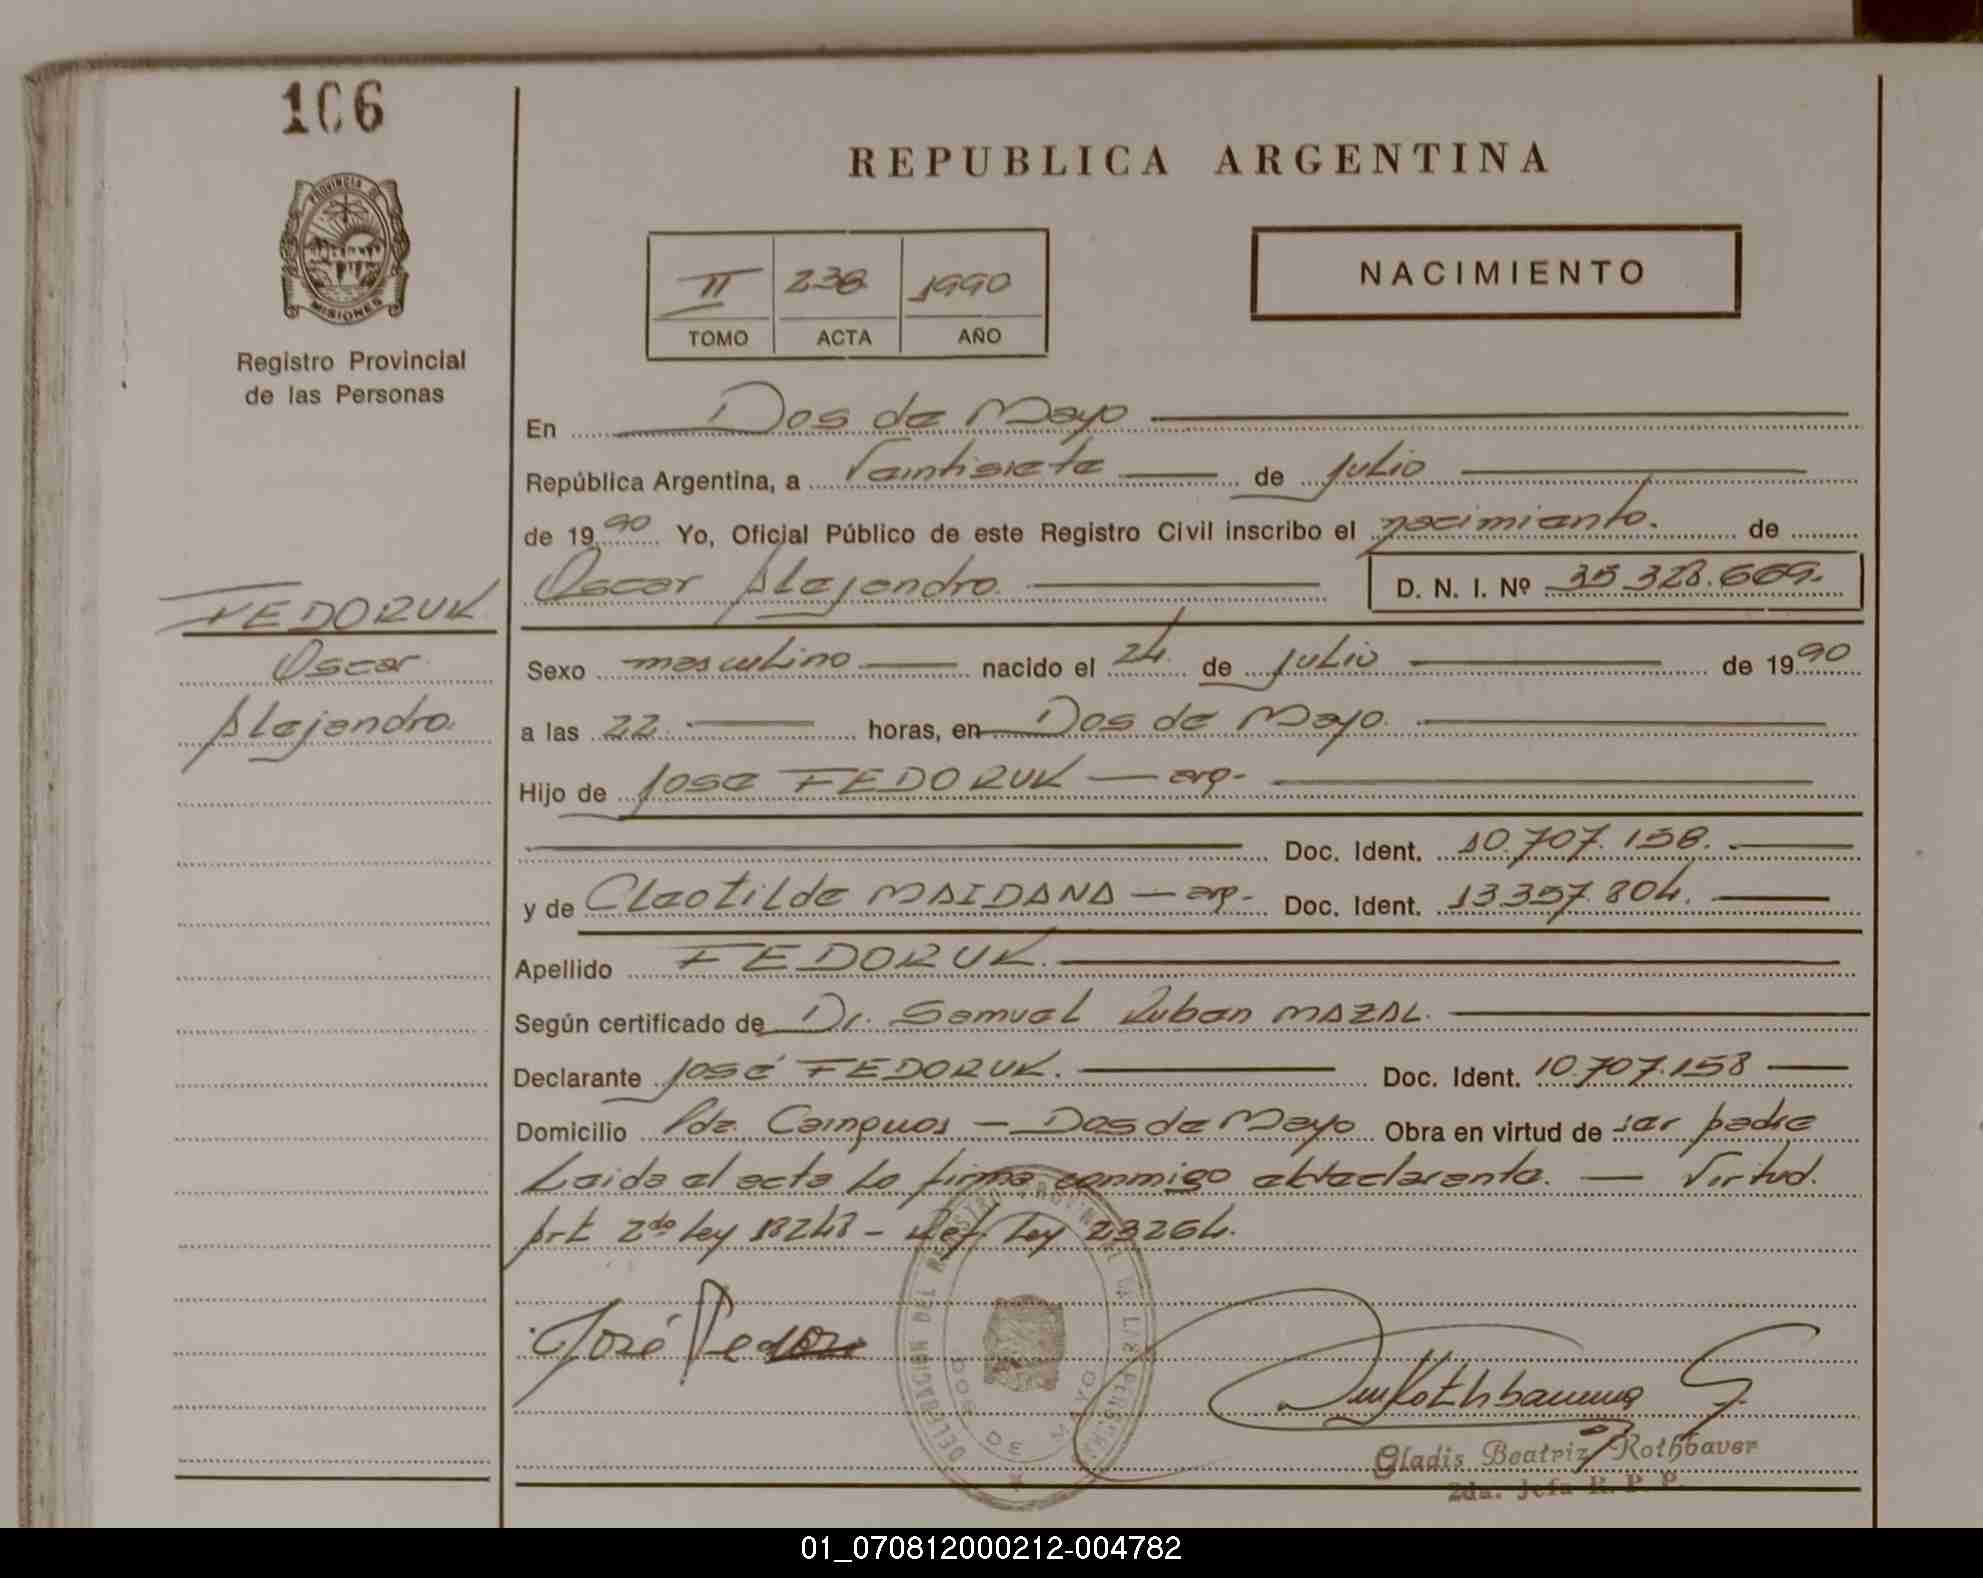 106
REPUBLICA ARGENTINA
PROVINCIA DE
MISIONES
Registro Provincial
de las Personas
II 238 1990
TOMO ACTA AÑO
NACIMIENTO
En Dos de Mayo
República Argentina, a Veintisiete de Julio
de 1990 Yo, Oficial Público de este Registro Civil inscribo el nacimiento. de
Oscar Alejandro. D. N. I. Nº 35.328.669.
FEDORUK
Oscar
Alejandro.
Sexo masculino nacido el 24. de Julio de 1990
a las 22. horas, en Dos de Mayo.
Hijo de Jose FEDORUK — arg.
Doc. Ident. 10.707.158.
y de Cleotilde MAIDANA — arg. Doc. Ident. 13.357.804.
Apellido FEDORUK.
Según certificado de Dr. Samuel Ruben MAZAL.
Declarante José FEDORUK. Doc. Ident. 10.707.158
Domicilio Pde. — Dos de Mayo Obra en virtud de ser padre
Leida el acta la firma conmigo el declarante. — Virtud.
Art 2do Ley 18248 - Ref. Ley 23264.
José
DELEGACION DEL REGISTRO PROVINCIAL DE LAS PERSONAS
DOS DE MAYO
Gladis Beatriz Rothbaver
2da. Jefa R. P. P.
01_070812000212-004782